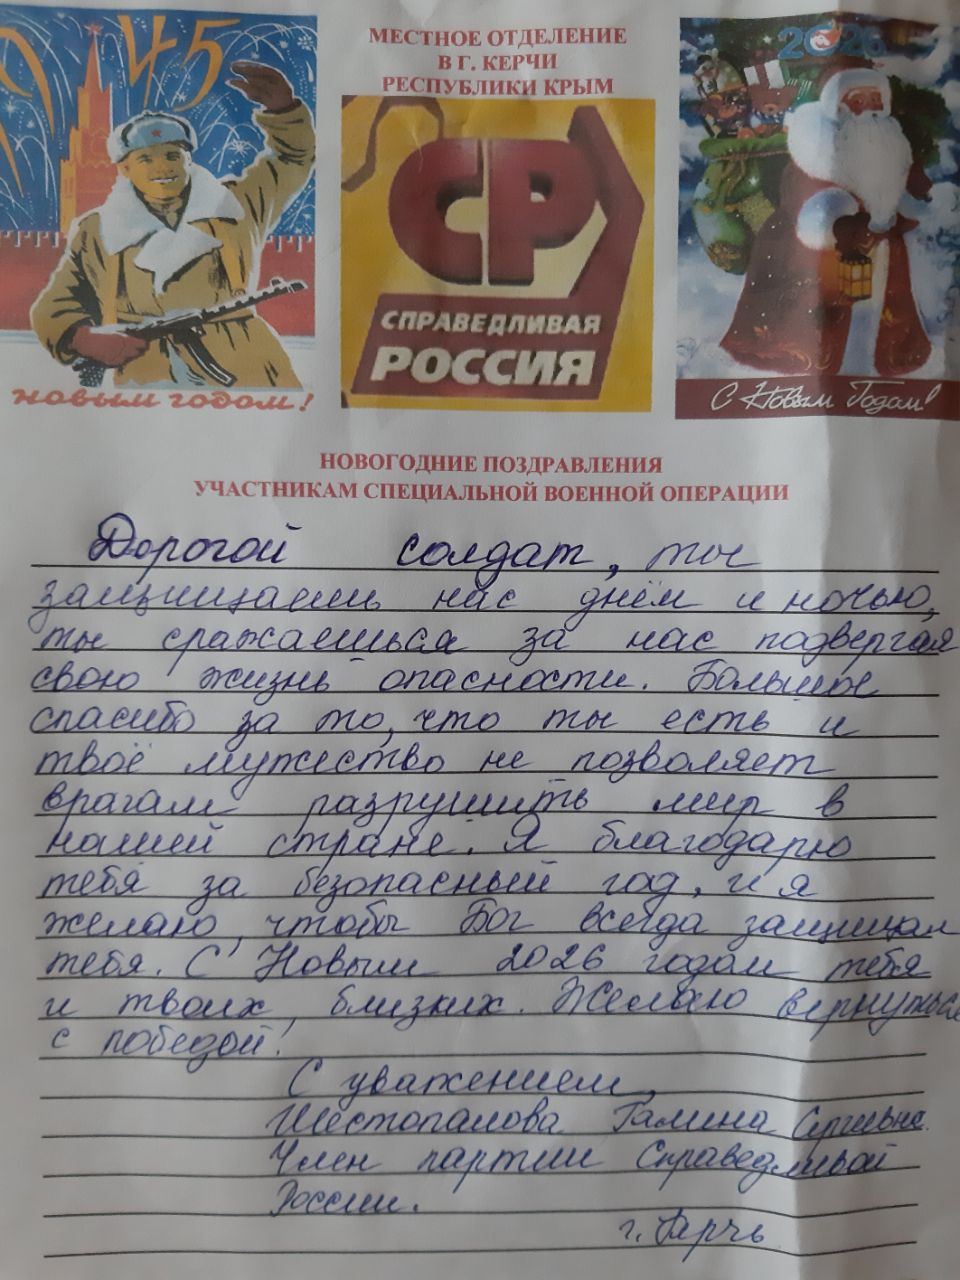 1945
НОВЫМ ГОДОМ!
МЕСТНОЕ ОТДЕЛЕНИЕ
В Г. КЕРЧИ
РЕСПУБЛИКИ КРЫМ
СР
СПРАВЕДЛИВАЯ
РОССИЯ
2026
С Новым Годом!
НОВОГОДНИЕ ПОЗДРАВЛЕНИЯ
УЧАСТНИКАМ СПЕЦИАЛЬНОЙ ВОЕННОЙ ОПЕРАЦИИ
Дорогой солдат, ты
защищаешь нас днём и ночью,
ты сражаешься за нас подвергая
свою жизнь опасности. Большое
спасибо за то, что ты есть и
твоё мужество не позволяет
врагам разрушить мир в
нашей стране. Я благодарю
тебя за безопасный год, и я
желаю, чтобы Бог всегда защищал
тебя. С Новым 2026 годом тебя
и твоих, близких. Желаю вернуться
с победой!
С уважением,
Шестопалова Галина Сергеевна.
Член партии Справедливой
России.
г. Керчь